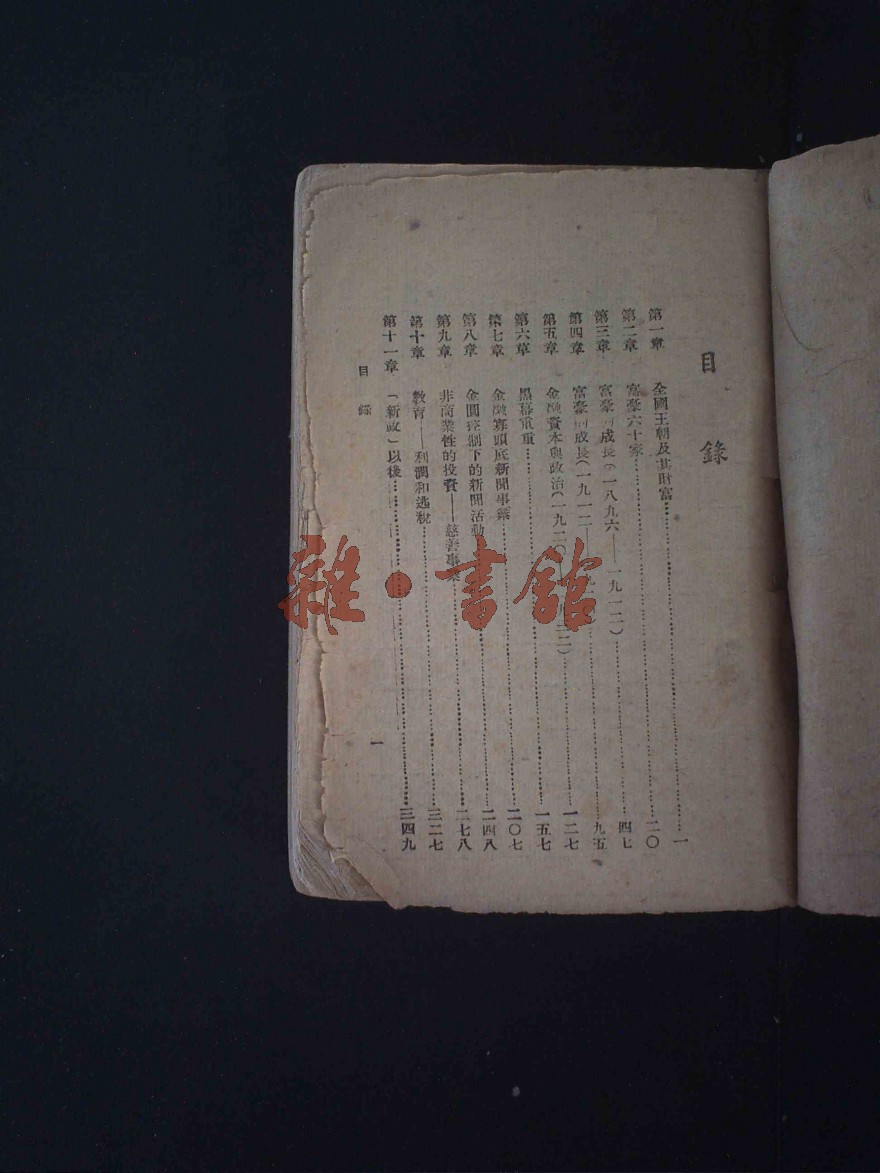 目錄
第一章 全國王朝及其財富 一
第二章 富豪六十家 二〇
第三章 富豪的成長(一八九六——一九一二) 四七
第四章 富豪的成長(一九一二—— 九五
第五章 金融資本與政治(一九二〇 三二) 一二七
第六章 黑幕重重 一五七
第七章 金融寡頭底新聞事業 二〇七
第八章 金圓控制下的新聞活動 二四八
第九章 非商業性的投資——慈善事業 二七八
第十章 教育——利潤和逃稅 三二七
第十一章 「新政」以後 三四九
目錄
一
雜·書館